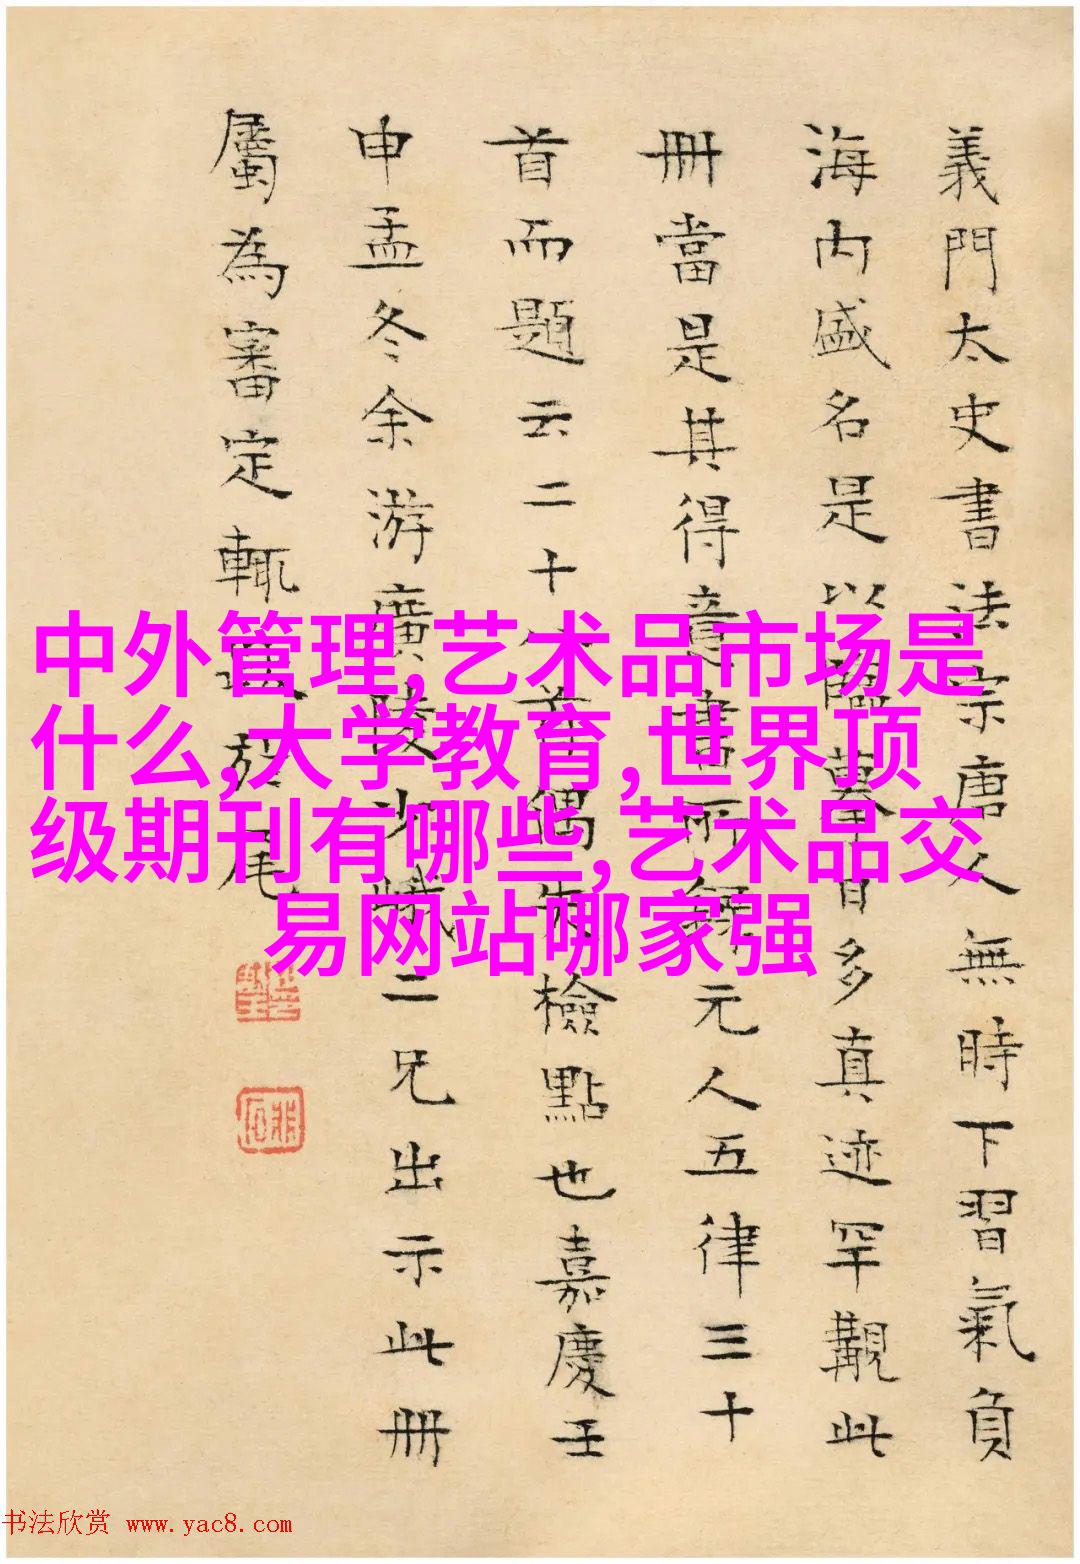 義門太史書法宗唐人無時下習氣負
海内盛名是以臨摹日多真迹罕覯此
冊當是其得意書所錄元人五律三十
首而題云二十八首偶失檢點也嘉慶壬
申孟冬余游廣陵少峨二兄出示此冊
屬為審定輒於尾
中外管理,艺术品市场是
什么,大学教育,世界顶
级期刊有哪些,艺术品交
易网站哪家强
书法欣赏 www.yac8.com